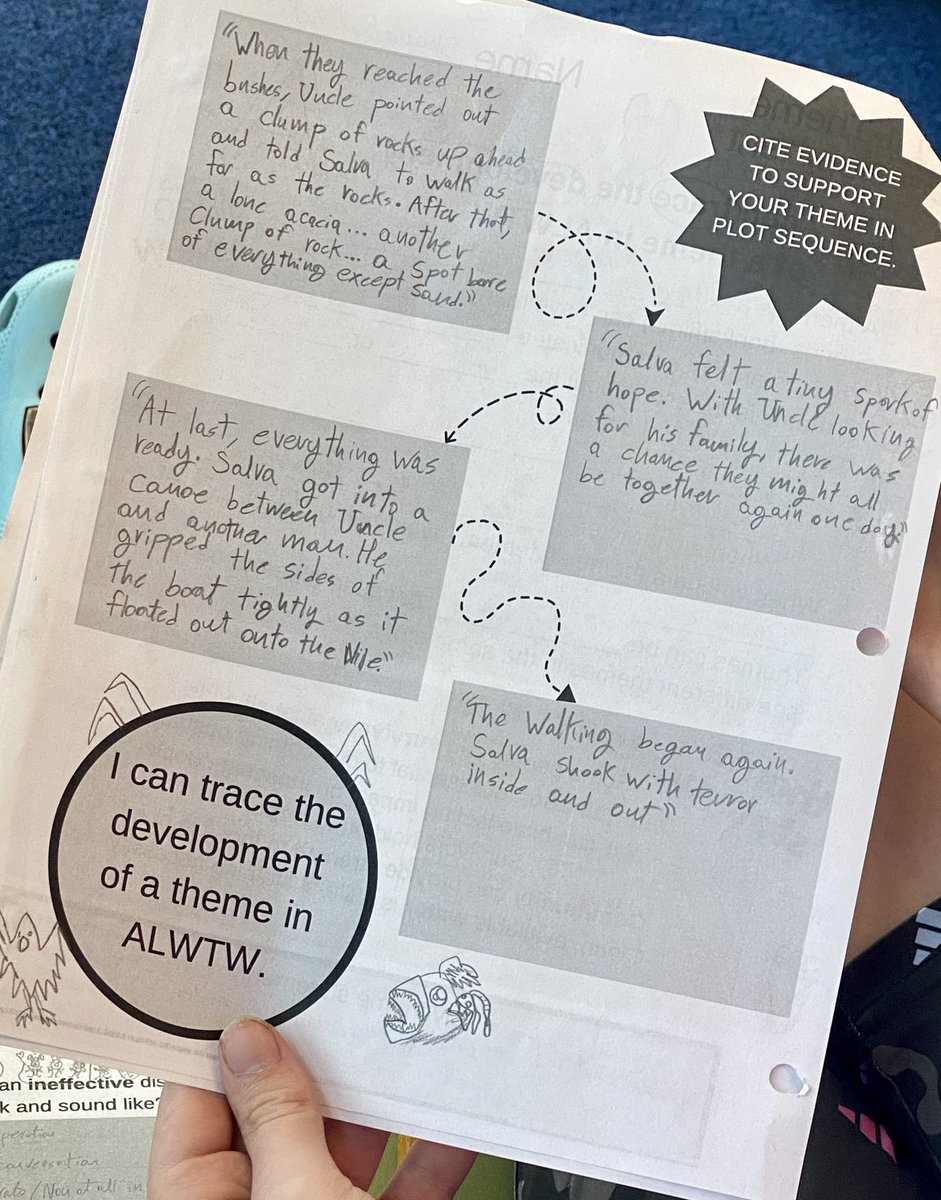 "When they reached the
bushes, Uncle pointed out
a clump of rocks up ahead
and told Salva to walk as
far as the rocks. After that,
a lone acacia... another
Clump of rock... a spot bare
of everything except sand."
CITE EVIDENCE
TO SUPPORT
YOUR THEME IN
PLOT SEQUENCE.
"Salva felt a tiny spark of
hope. With Uncle looking
for his family, there was
a chance they might all
be together again one day."
"At last, everything was
ready. Salva got into a
canoe between Uncle
and another man. He
gripped the sides of
the boat tightly as it
floated out onto the Nile."
"The Walking began again.
Salva shook with terror
inside and out"
I can trace the
development
of a theme in
ALWTW.
an ineffective dis
k and sound like?